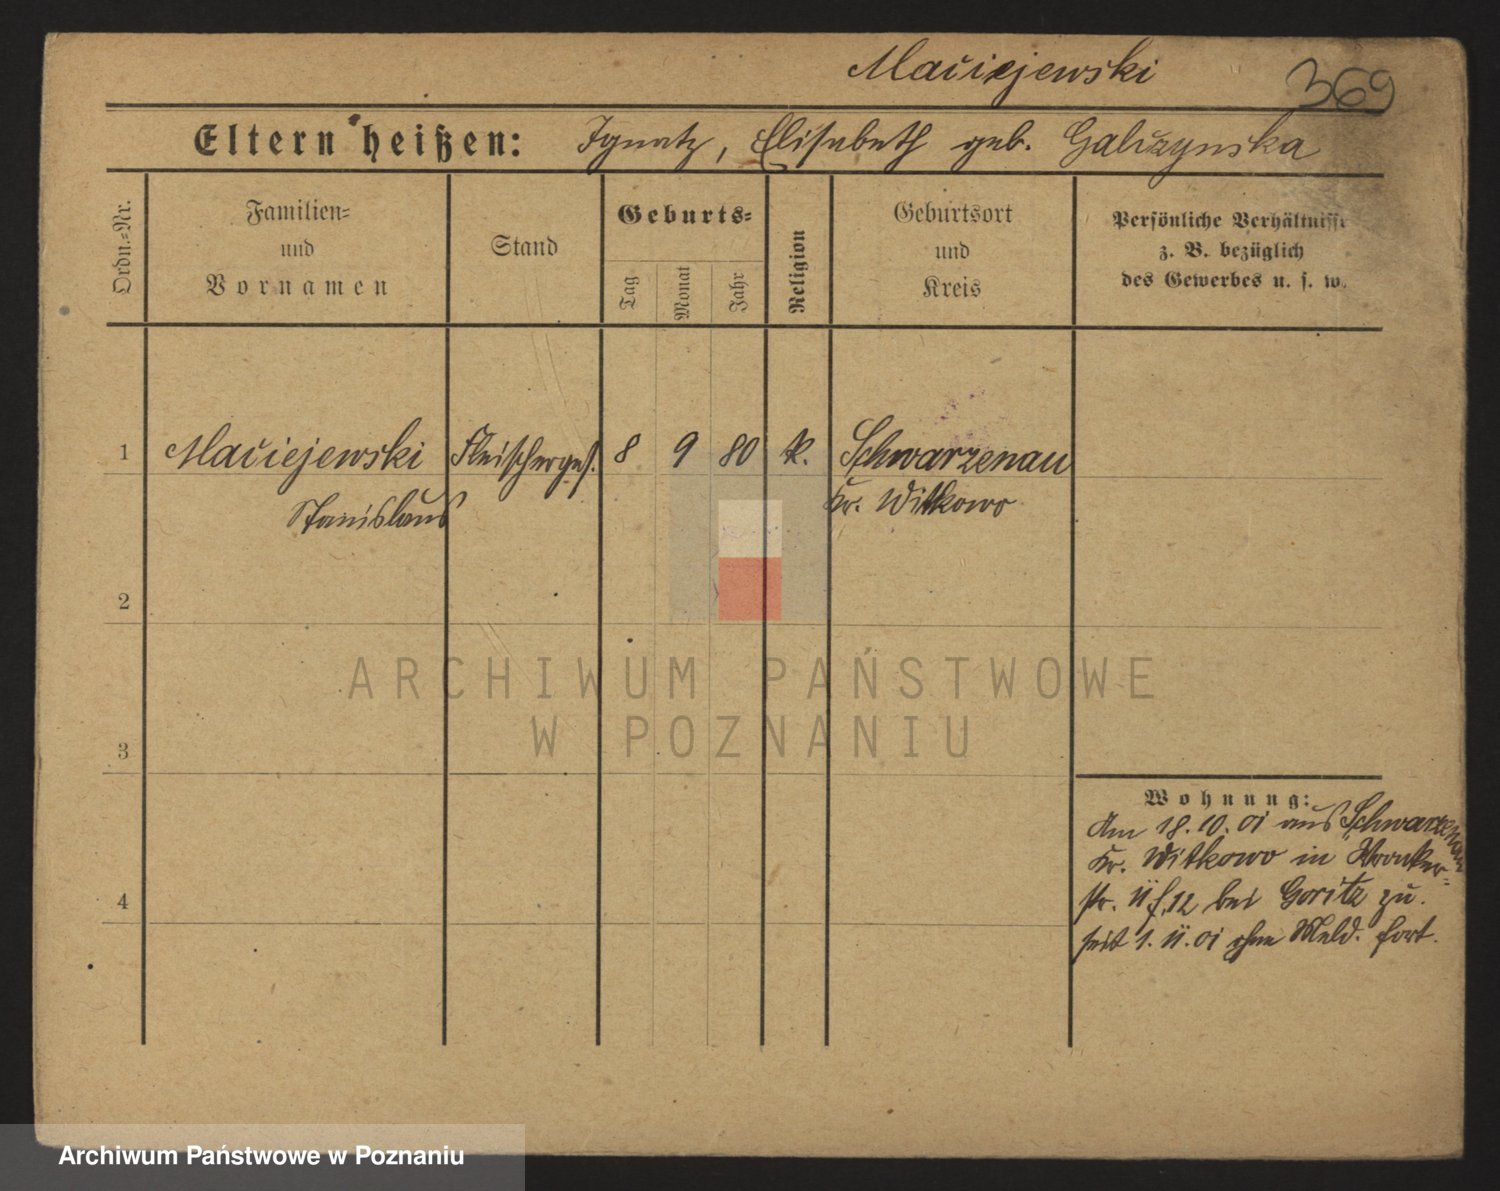 Maciejewski
369
Eltern heißen: Ignatz, Elisabeth geb. Galczynska
Ordn.-Nr.
Familien-
und
Vornamen
Stand
Geburts-
Tag
Monat
Jahr
Religion
Geburtsort
und
Kreis
Persönliche Verhältnisse
z. B. bezüglich
des Gewerbes u. s. w.
1 Maciejewski Fleischerges. 8 9 80 k. Schwarzenau
Stanislaus Kr. Witkowo
2
3
4
Wohnung:
Am 18.10.01 aus Schwarzenau
Kr. Witkowo in Wronker-
str. 11 12 bei Goritz zu.
seit 1.11.01 ohne Meld. fort.
ARCHIWUM PAŃSTWOWE
W POZNANIU
Archiwum Państwowe w Poznaniu